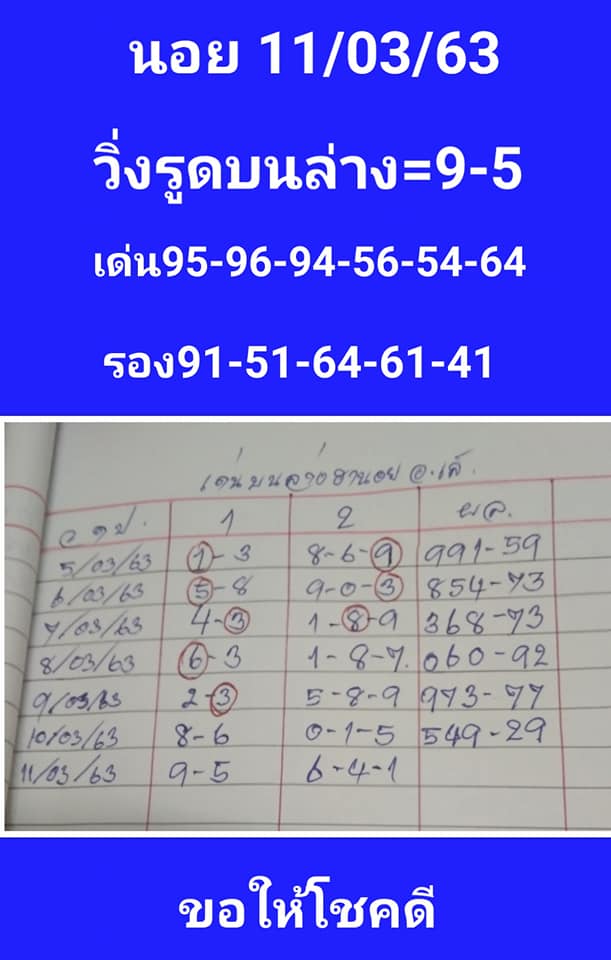 นอย 11/03/63
วิ่งรูดบนล่าง=9-5
เด่น95-96-94-56-54-64
รอง91-51-64-61-41
เด่นบนล่างฮานอย อ.เล้.
ว ด ป. 1 2 ผล.
5/03/63 1-3 8-6-9 991-59
6/03/63 5-8 9-0-3 854-73
7/03/63 4-3 1-8-9 368-73
8/03/63 6-3 1-8-7. 060-92
9/03/63 2-3 5-8-9 973-77
10/03/63 8-6 0-1-5 549-29
11/03/63 9-5 6-4-1
ขอให้โชคดี